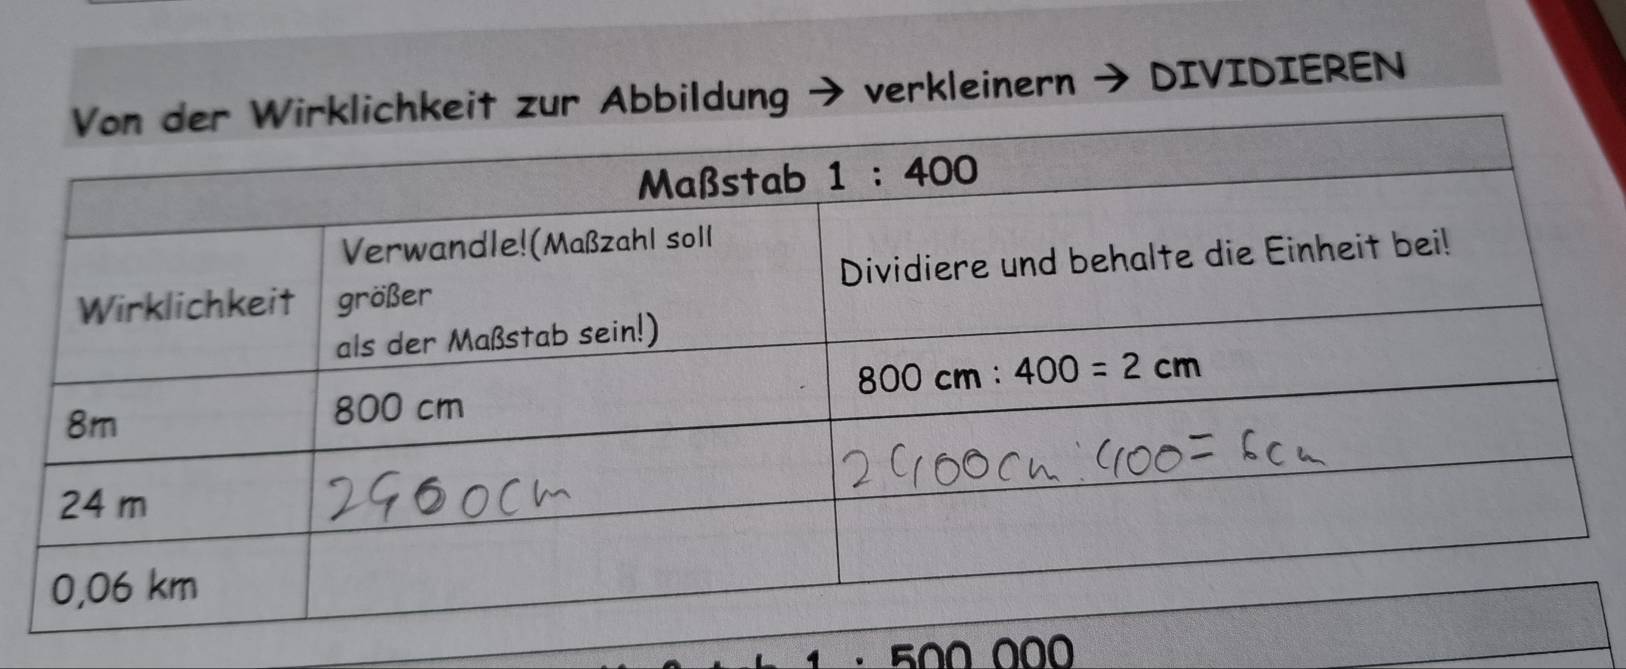 Von der Wirklichkeit zur Abbildung → verkleinern → DIVIDIEREN
Maßstab 1 : 400
Wirklichkeit
Verwandle!(Maßzahl soll
größer
als der Maßstab sein!)
Dividiere und behalte die Einheit bei!
8m
800 cm
800 cm : 400 = 2 cm
24 m
2400cm
2400cm : 400 = 6cm
0,06 km
1 : 500 000